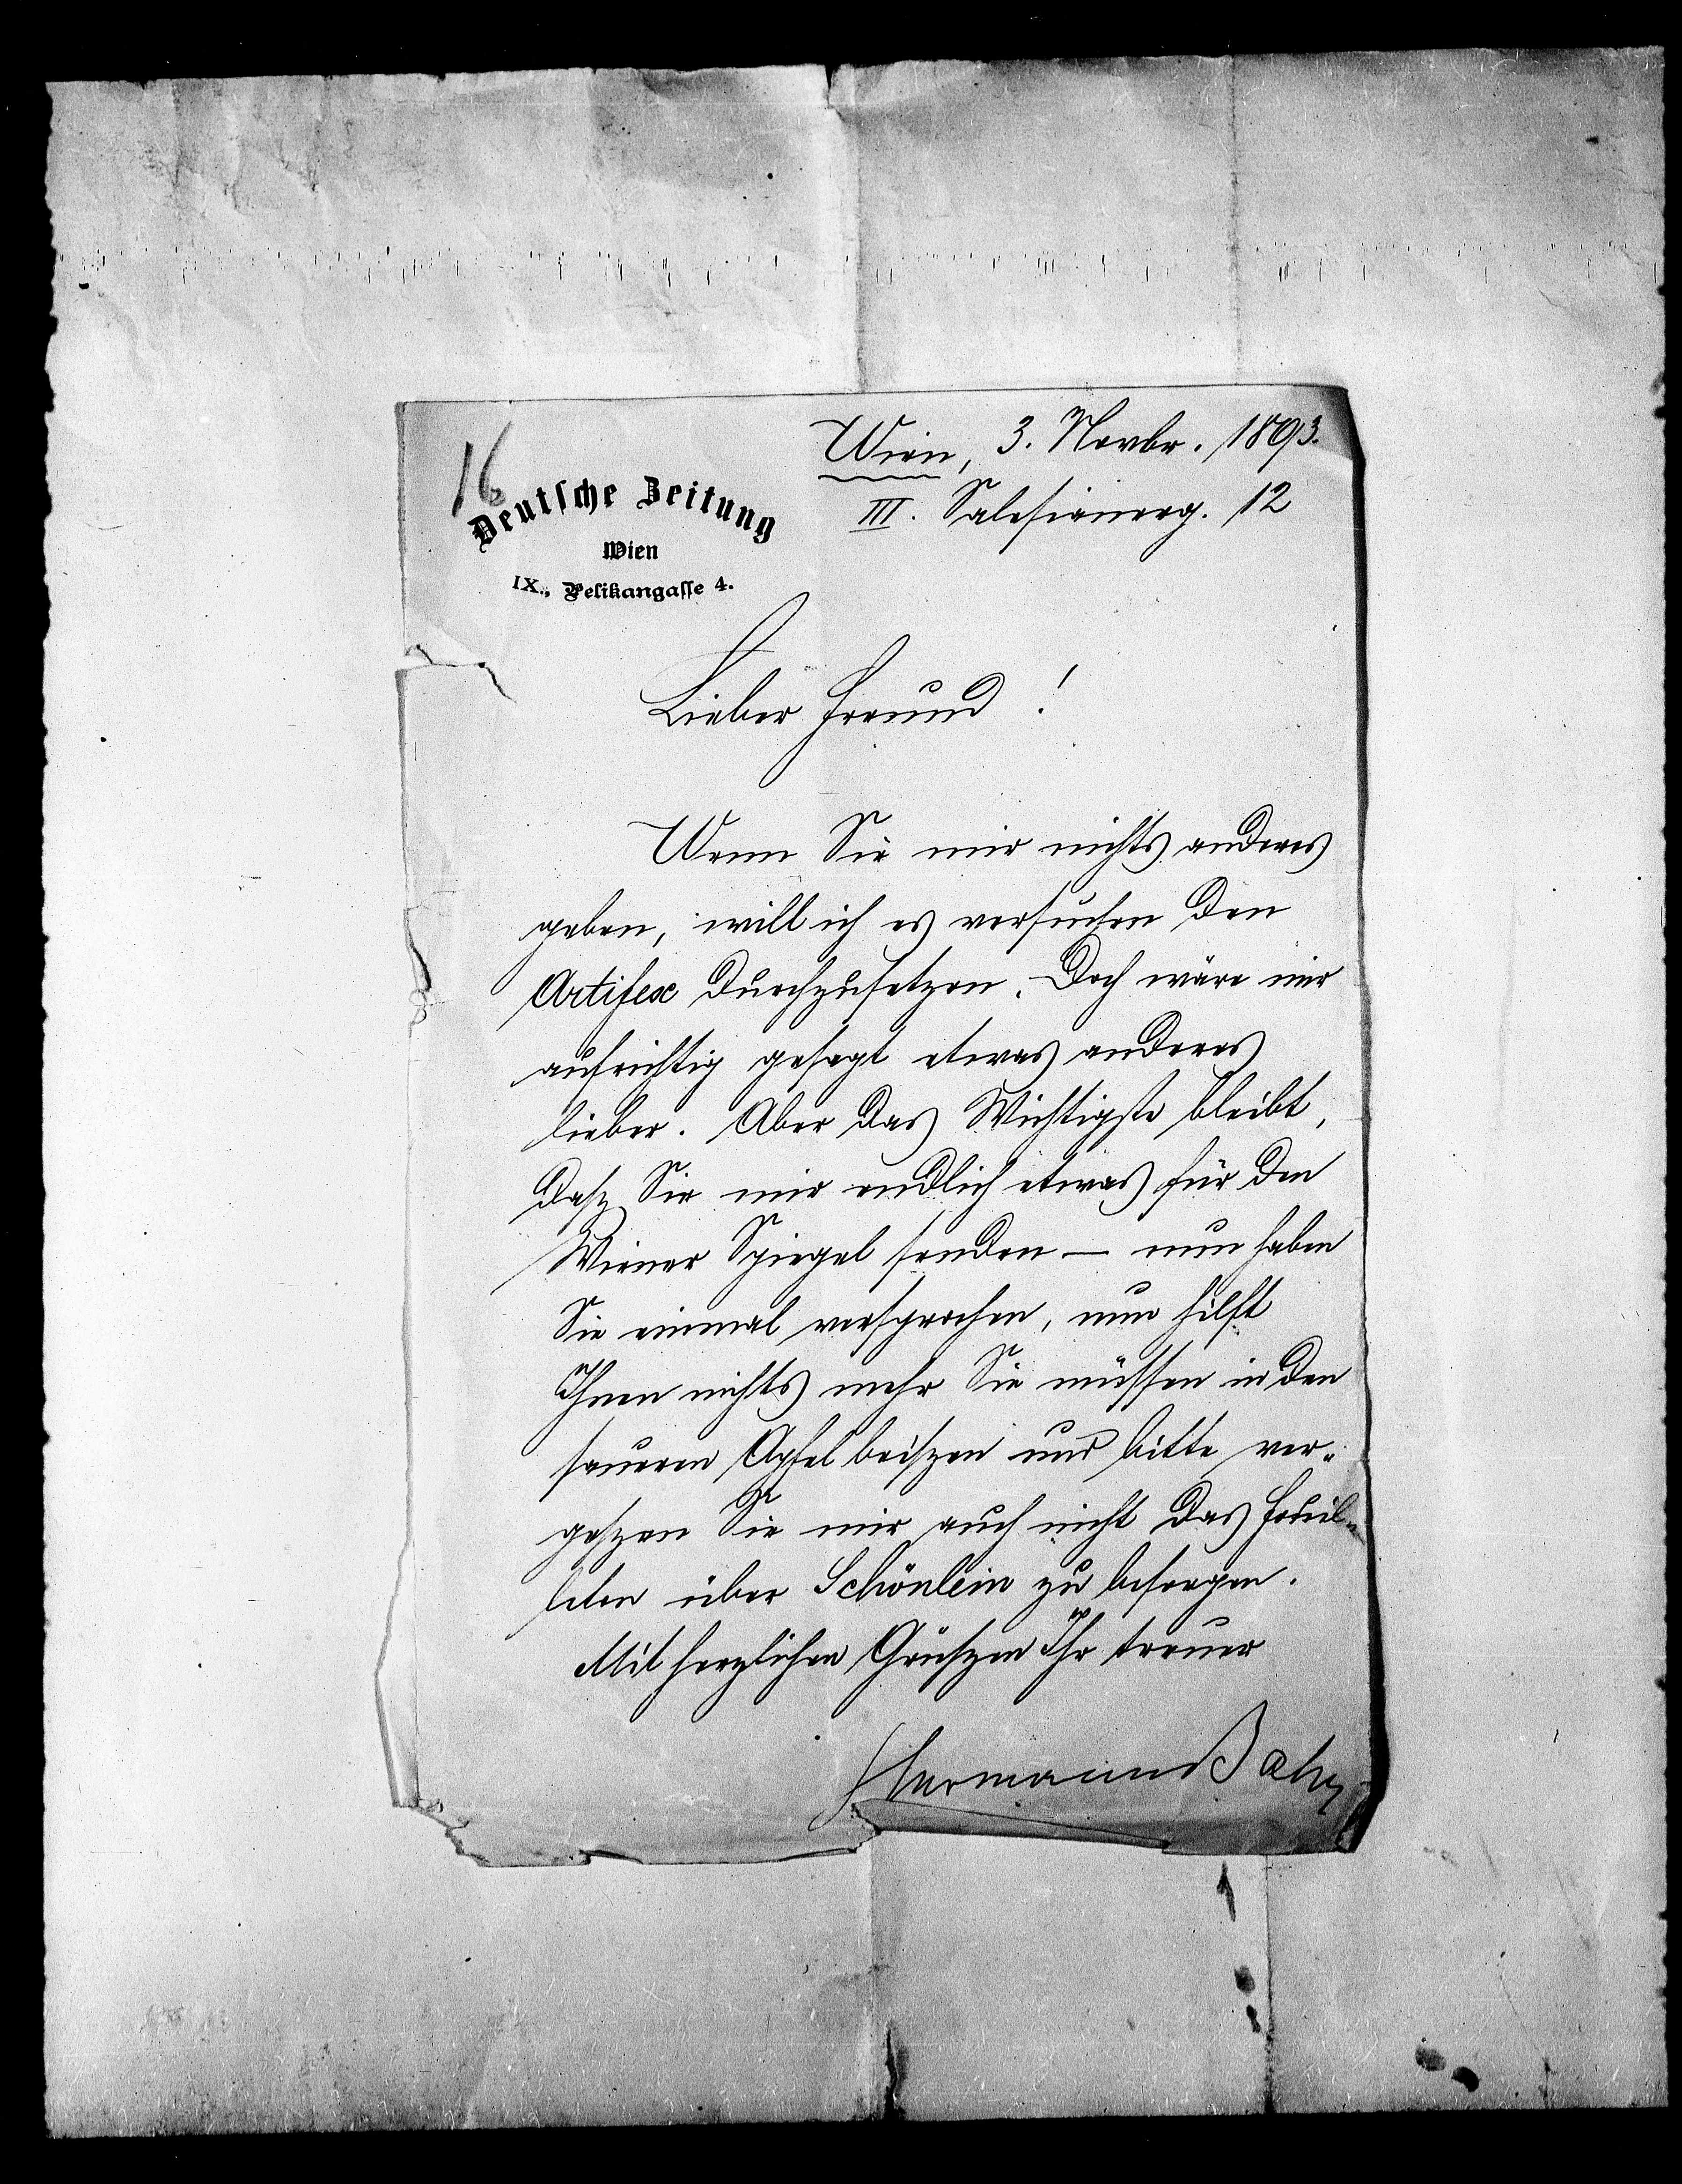 16
Wien, 3. Novbr. 1893.
Deutsche Zeitung
III. Salesianerg. 12
Wien
IX., Pelikangasse 4.
Lieber Freund!
Wenn Sie mir nichts anderes
geben, will ich es versuchen den
Artifex durchzusetzen. Doch wäre mir
aufrichtig gesagt etwas anderes
lieber. Aber das Wichtigste bleibt,
dasz Sie mir endlich etwas für den
Wiener Spiegel senden – nun haben
Sie einmal versprochen, nun hilft
Ihnen nichts mehr Sie müssen in den
saueren Apfel beiszen und bitte ver-
geszen Sie mir auch nicht das Feuil-
leton über Schönlein zu besorgen.
Mit herzlichen Grüszen Ihr treuer
Hermann Bahr